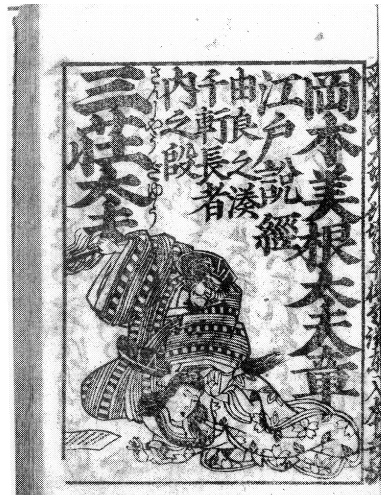 岡本美根太夫章
江戸説經
由良之湊
千軒長者
内之段
さんしやうだゆう
三荘太夫